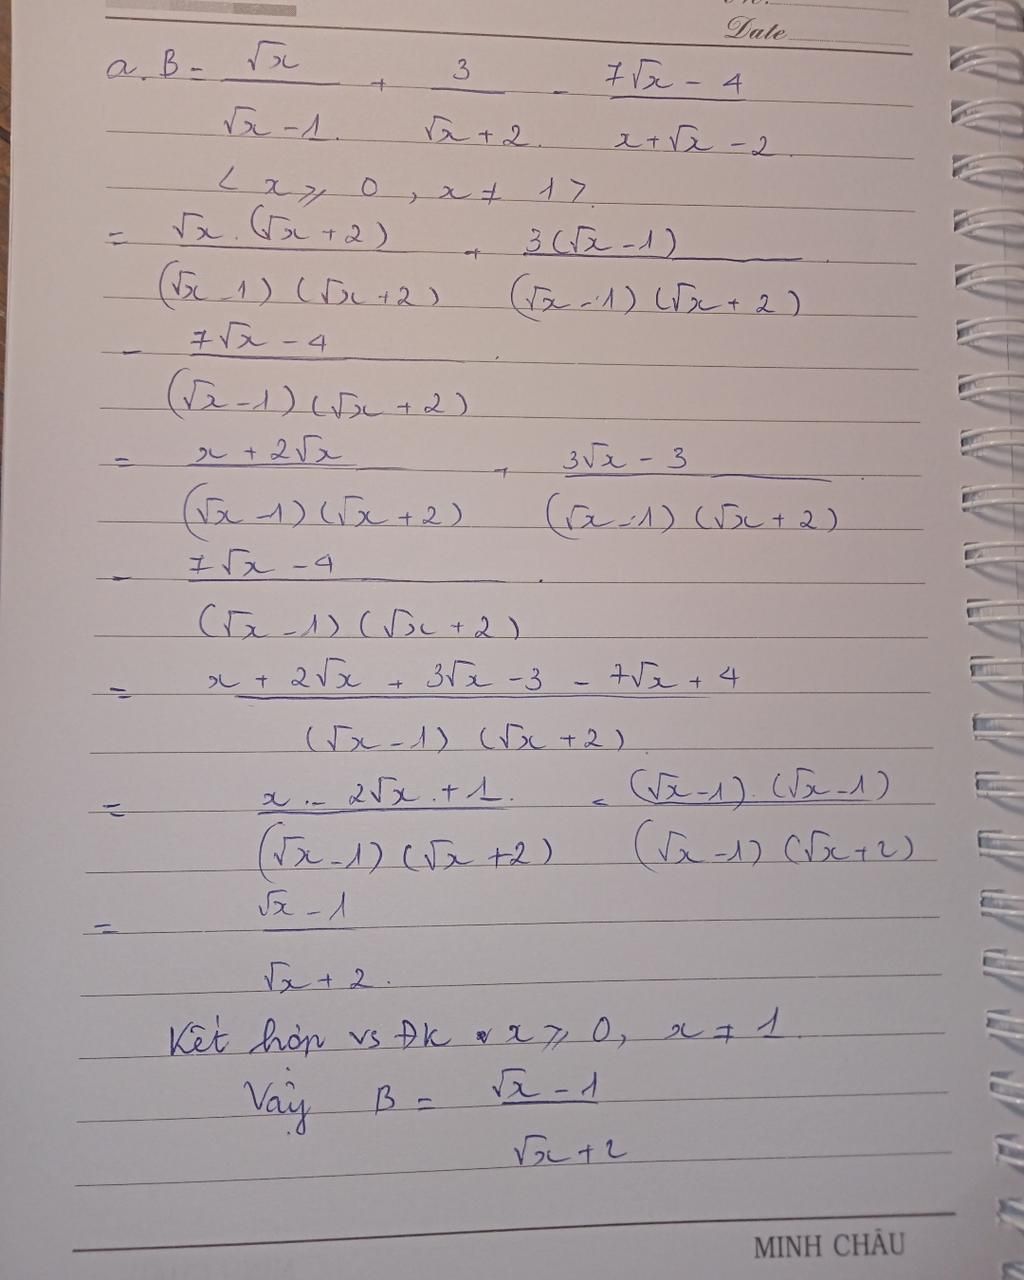 Date
a. B = √x / √x - 1 + 3 / √x + 2 - 7√x - 4 / x + √x - 2
< x ⩾ 0, x ≠ 1 >
= √x . (√x + 2) / (√x - 1) (√x + 2) + 3(√x - 1) / (√x - 1) (√x + 2)
- 7√x - 4 / (√x - 1) (√x + 2)
= x + 2√x / (√x - 1) (√x + 2) + 3√x - 3 / (√x - 1) (√x + 2)
- 7√x - 4 / (√x - 1) (√x + 2)
= x + 2√x + 3√x - 3 - 7√x + 4 / (√x - 1) (√x + 2)
= x - 2√x + 1 / (√x - 1) (√x + 2) = (√x - 1) . (√x - 1) / (√x - 1) (√x + 2)
= √x - 1 / √x + 2
Kết hợp vs ĐK x ⩾ 0, x ≠ 1
Vậy B = √x - 1 / √x + 2
MINH CHÂU